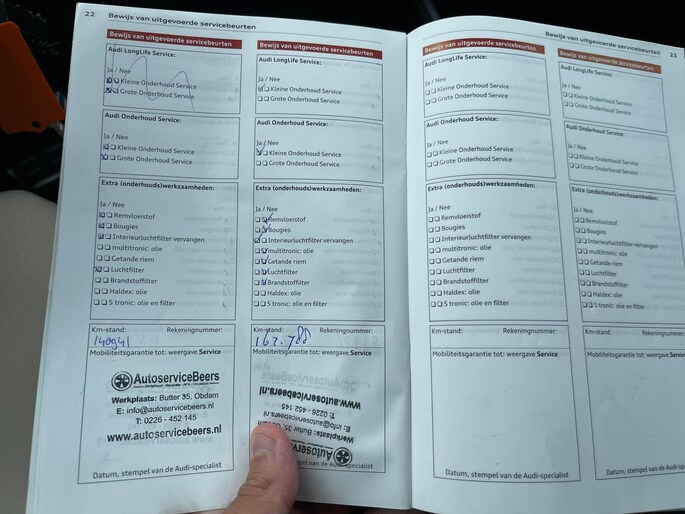 22 Bewijs van uitgevoerde servicebeurten
Bewijs van uitgevoerde servicebeurten
Audi LongLife Service:
Ja / Nee
Kleine Onderhoud Service
Grote Onderhoud Service
Audi Onderhoud Service:
Ja / Nee
Kleine Onderhoud Service
Grote Onderhoud Service
Extra (onderhouds)werkzaamheden:
Ja / Nee
Remvloeistof
Bougies
Interieurluchtfilter vervangen
multitronic: olie
Getande riem
Luchtfilter
Brandstoffilter
Haldex: olie
S tronic: olie en filter
Km-stand: Rekeningnummer:
140941
Mobiliteitsgarantie tot: weergave Service
AutoserviceBeers
Werkplaats: Butter 35, Obdam
E: info@autoservicebeers.nl
T: 0226 - 452 145
www.autoservicebeers.nl
Datum, stempel van de Audi-specialist
Bewijs van uitgevoerde servicebeurten
Audi LongLife Service:
Ja / Nee
Kleine Onderhoud Service
Grote Onderhoud Service
Audi Onderhoud Service:
Ja / Nee
Kleine Onderhoud Service
Grote Onderhoud Service
Extra (onderhouds)werkzaamheden:
Ja / Nee
Remvloeistof
Bougies
Interieurluchtfilter vervangen
multitronic: olie
Getande riem
Luchtfilter
Brandstoffilter
Haldex: olie
S tronic: olie en filter
Km-stand: Rekeningnummer:
162.788
Mobiliteitsgarantie tot: weergave Service
www.autoservicebeers.nl
T: 0226 - 452 145
E: info@autoservicebeers.nl
Werkplaats: Butter 35,
Autoserv
stempel van de Audi-specialist
Bewijs van uitgevoerde servicebeurten 23
Bewijs van uitgevoerde servicebeurten
Audi LongLife Service:
Ja / Nee
Kleine Onderhoud Service
Grote Onderhoud Service
Audi Onderhoud Service:
Ja / Nee
Kleine Onderhoud Service
Grote Onderhoud Service
Extra (onderhouds)werkzaamheden:
Ja / Nee
Remvloeistof
Bougies
Interieurluchtfilter vervangen
multitronic: olie
Getande riem
Luchtfilter
Brandstoffilter
Haldex: olie
S tronic: olie en filter
Km-stand: Rekeningnummer:
Mobiliteitsgarantie tot: weergave Service
Datum, stempel van de Audi-specialist
Bewijs van uitgevoerde servicebeurten
Audi LongLife Service:
Ja / Nee
Kleine Onderhoud Service
Grote Onderhoud Service
Audi Onderhoud Service:
Ja / Nee
Kleine Onderhoud Service
Grote Onderhoud Service
Extra (onderhouds)werkzaamheden:
Ja / Nee
Remvloeistof
Bougies
Interieurluchtfilter vervangen
multitronic: olie
Getande riem
Luchtfilter
Brandstoffilter
Haldex: olie
S tronic: olie en filter
Km-stand: Rekeningnummer:
Mobiliteitsgarantie tot: weergave
Datum, stempel van de Audi-specialist